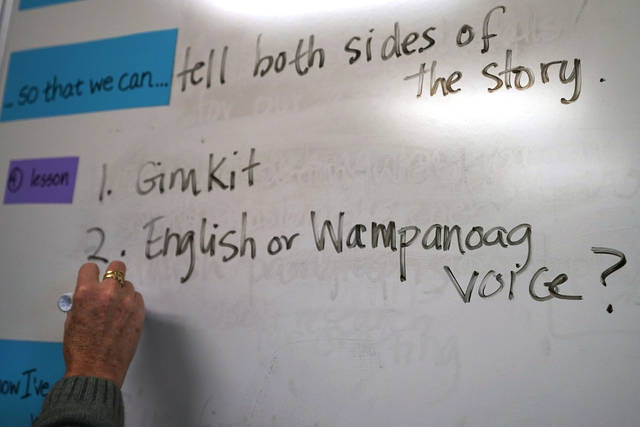 ...so that we can... tell both sides of
the story.
lesson
1. GimKit
2. English or Wampanoag
voice?
I've